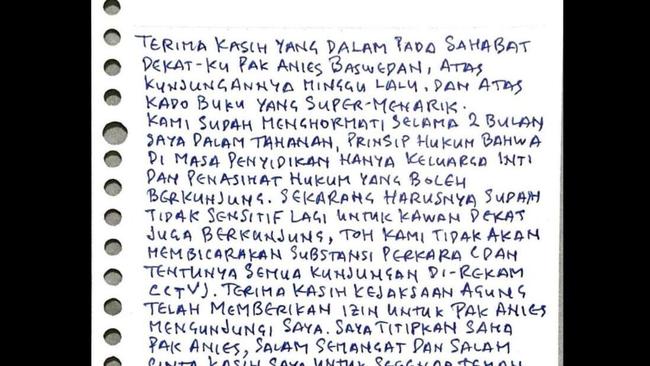 TERIMA KASIH YANG DALAM PADA SAHABAT
DEKAT-KU PAK ANIES BASWEDAN, ATAS
KUNJUNGANNYA MINGGU LALU, DAN ATAS
KADO BUKU YANG SUPER-MENARIK.
KAMI SUDAH MENGHORMATI SELAMA 2 BULAN
SAYA DALAM TAHANAN, PRINSIP HUKUM BAHWA
DI MASA PENYIDIKAN HANYA KELUARGA INTI
DAN PENASIHAT HUKUM YANG BOLEH
BERKUNJUNG. SEKARANG HARUSNYA SUDAH
TIDAK SENSITIF LAGI UNTUK KAWAN DEKAT
JUGA BERKUNJUNG, TOH KAMI TIDAK AKAN
MEMBICARAKAN SUBSTANSI PERKARA (DAN
TENTUNYA SEMUA KUNJUNGAN DI-REKAM
CCTV). TERIMA KASIH KEJAKSAAN AGUNG
TELAH MEMBERIKAN IZIN UNTUK PAK ANIES
MENGUNJUNGI SAYA. SAYA TITIPKAN SAMA
PAK ANIES, SALAM SEMANGAT DAN SALAM
CINTA KASIH SAYA UNTUK SEGENAP TEMAN